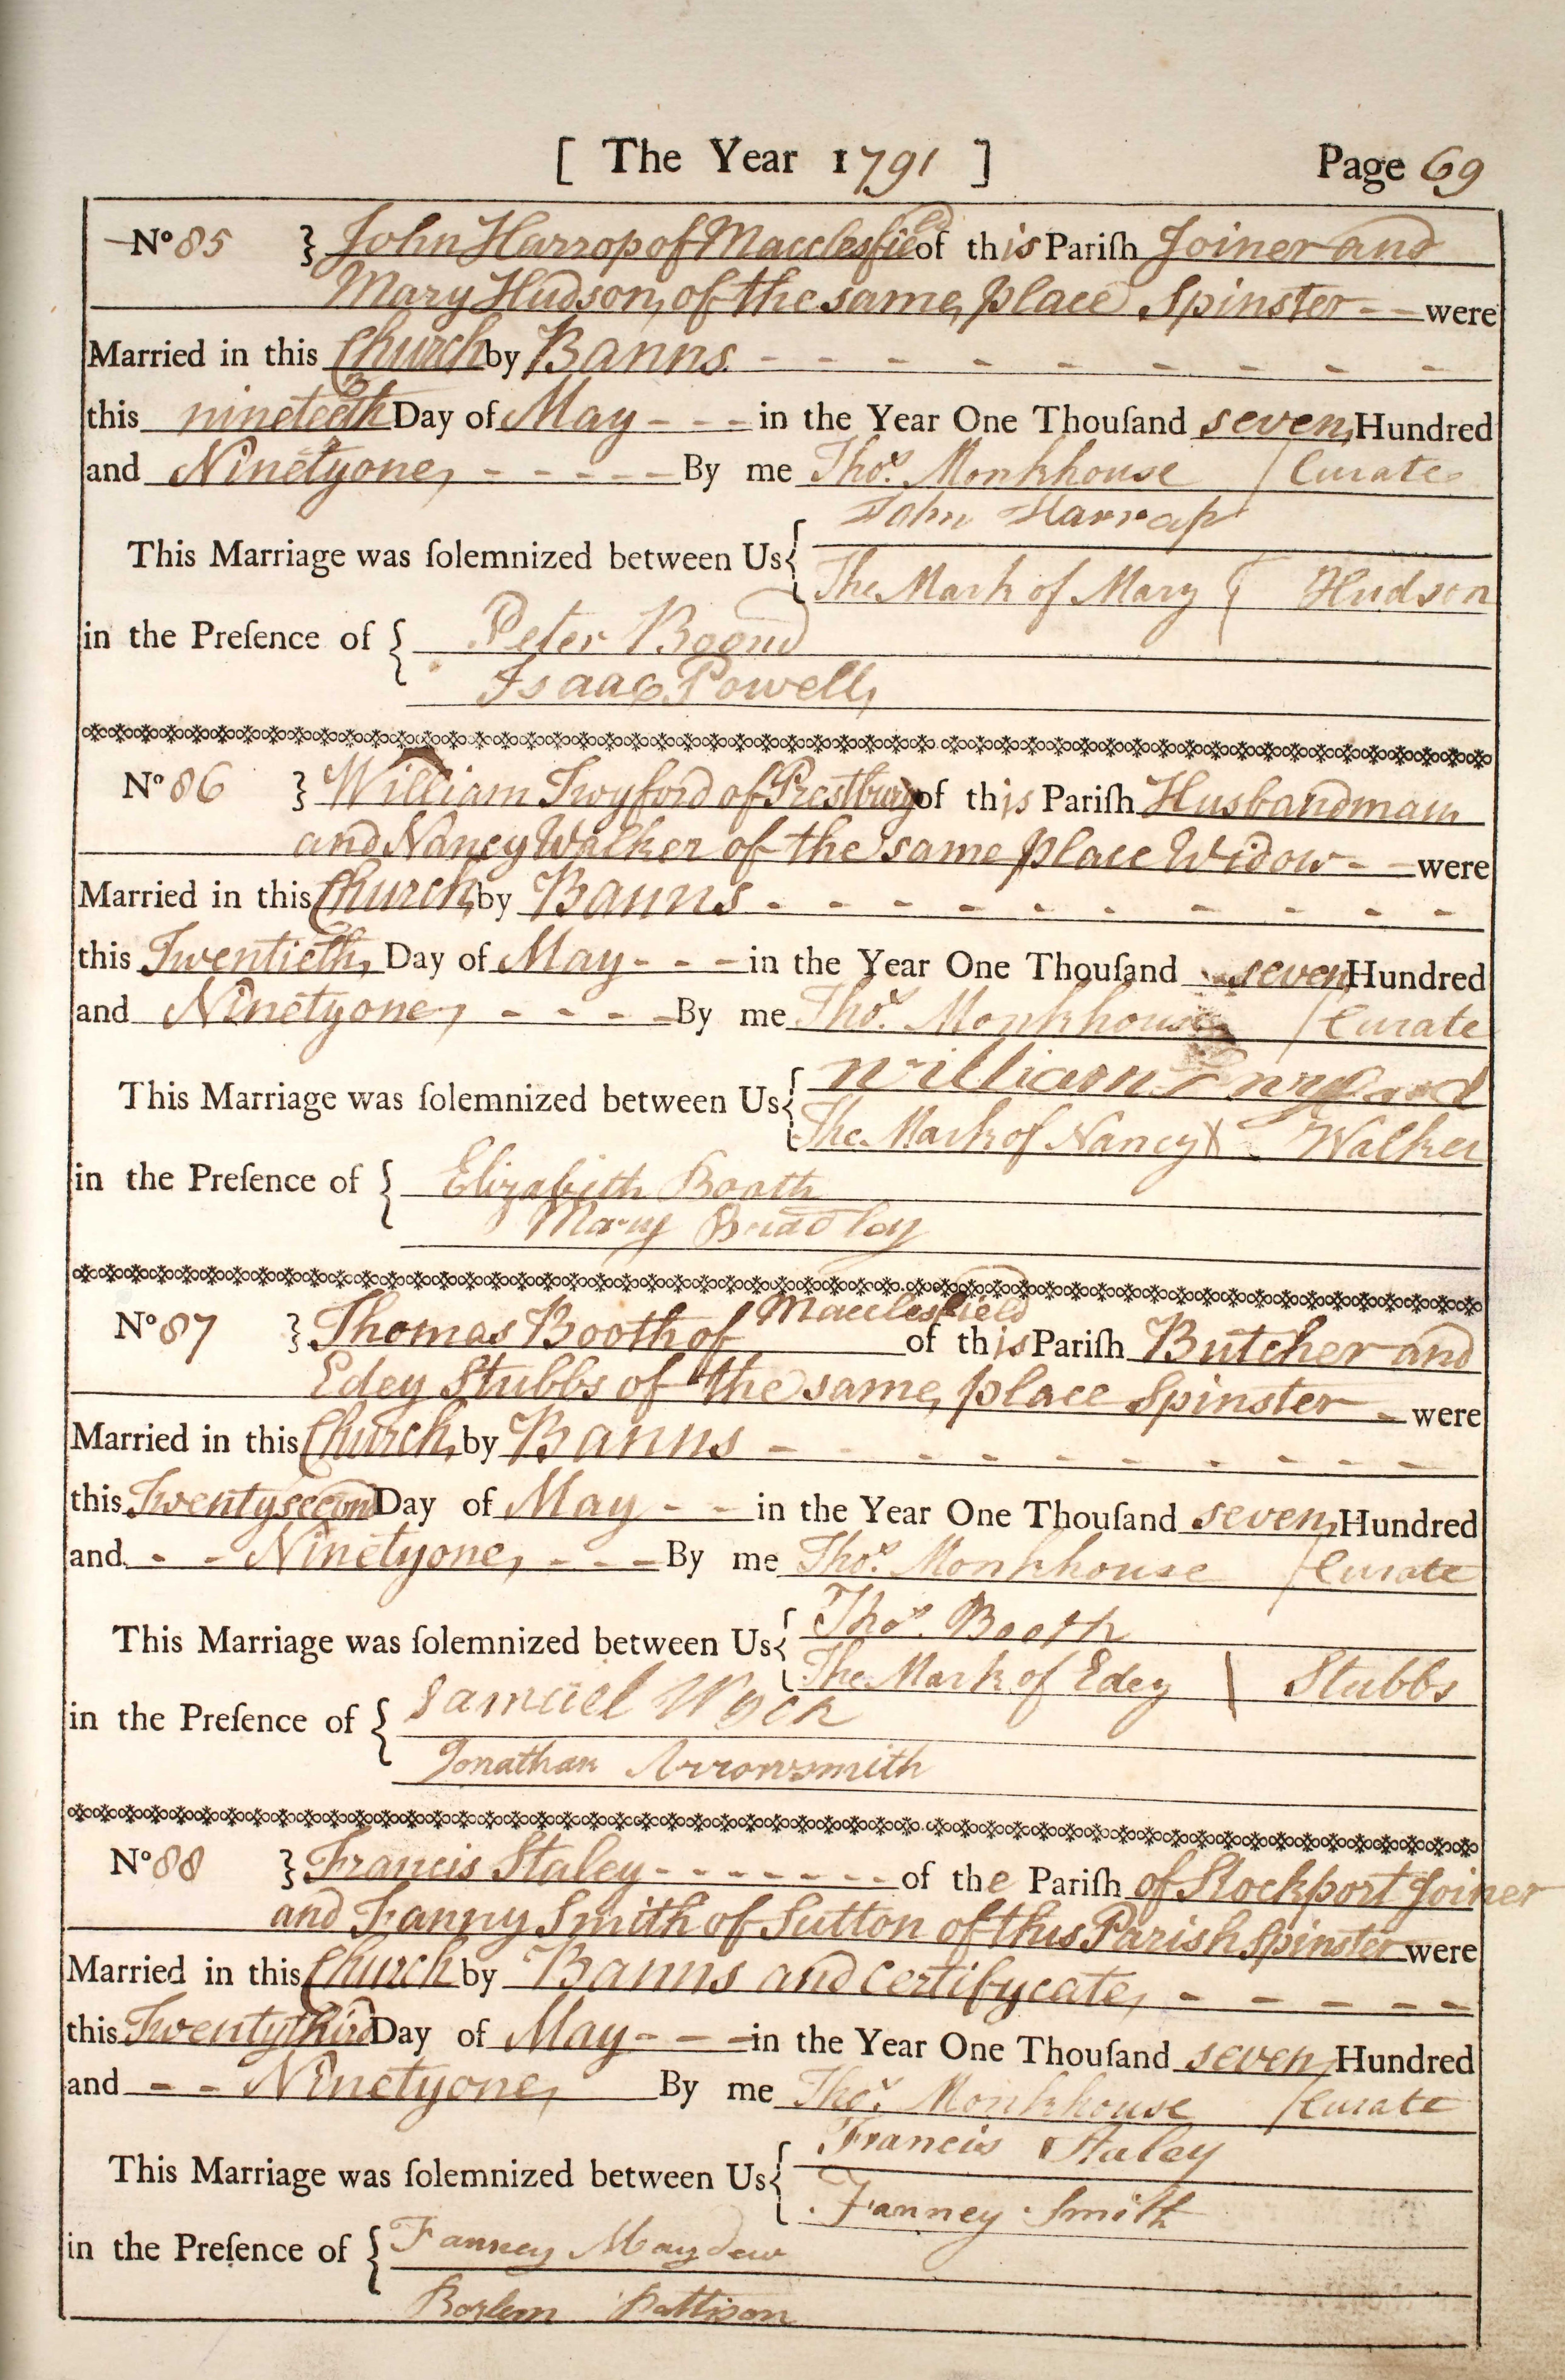 [ The Year 1791 ] Page 69
No 85 } John Harrop of Macclesfield of this Pariſh Joiner and
Mary Hudson, of the same, place Spinster - - were
Married in this Church by Banns - - - - - - - - -
this nineteeth Day of May - - - in the Year One Thouſand seven, Hundred
and Ninetyone, - - - - - By me Thos. Monkhouse / Curate
This Marriage was ſolemnized between Us { John Harrap
The Mark of Mary ( Hudson
in the Preſence of { Peter Boond
Isaac Powell,
No 86 } William Twyford of Prestbury of this Pariſh Husbandman
and Nancy Walker of the same place Widow - - were
Married in this Church, by Banns - - - - - - - - -
this Twentieth, Day of May - - - in the Year One Thouſand seven, Hundred
and Ninetyone, - - - - By me Thos. Monkhouse / Curate
This Marriage was ſolemnized between Us { William Twyford
The Mark of Nancy \ Walker
in the Preſence of { Elizabeth Booth
Mary Bradley
No 87 } Thomas Booth of Macclesfield of this Pariſh Butcher and
Edey Stubbs of the same, place Spinster - were
Married in this Church, by Banns - - - - - - - - -
this Twentysecond Day of May - - in the Year One Thouſand seven, Hundred
and - - Ninetyone, - - - By me Thos. Monkhouse / Curate
This Marriage was ſolemnized between Us { Thos. Booth
The Mark of Edey \ Stubbs
in the Preſence of { Samuel
Jonathan Arrowsmith
No 88 } Francis Staley - - - - - - - of the Pariſh of Stockport Joiner
and Fanny Smith of Sutton of this Parish Spinster were
Married in this Church by Banns and certifycate, - - - - -
this Twentythird Day of May - - - in the Year One Thouſand seven, Hundred
and - - Ninetyone, By me Thos. Monkhouse / Curate
This Marriage was ſolemnized between Us { Francis Staley
Fanney Smith
in the Preſence of { Fanney Maydew
Pattison